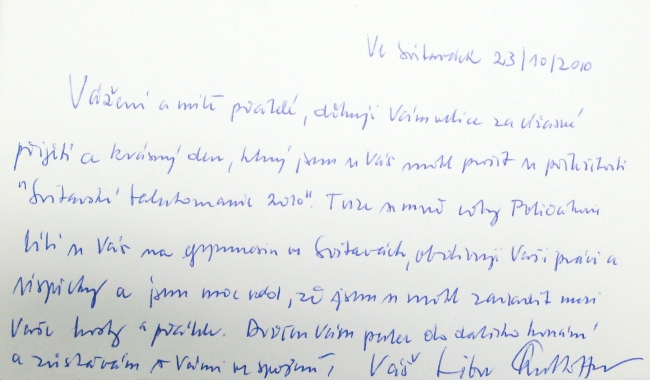 Ve Svitavách 23/10/2010
Vážení a milí přátelé, děkuji Vám velice za úžasné
přijetí a krásný den, který jsem u Vás mohl prožít u příležitosti
"Svitavské talentomanie 2010". Tuze se mně coby Poličákovi
líbí u Vás na gymnasiu ve Svitavách, obdivuji Vaši práci a
úspěchy a jsem moc rád, že jsem se mohl zařadit mezi
Vaše hosty a přátele. Držím Vám palce do dalšího konání
a zůstávám s Vámi ve spojení, Váš Libor